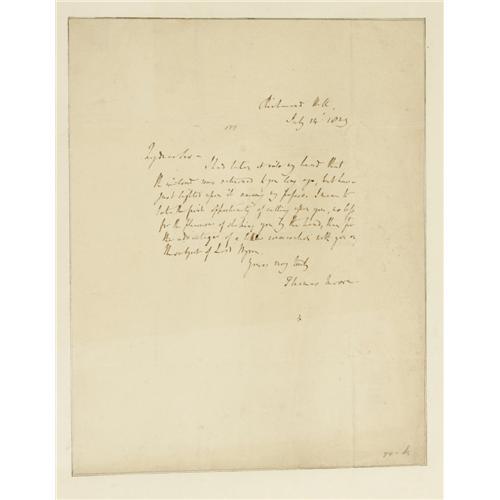 Richmond Hill,
July 14th 1829
My dear Sir —
I had taken it into my head that
the enclosed was returned to you long ago, but have
just lighted upon it among my papers. I mean to
take the first opportunity of calling upon you, no less
for the pleasure of shaking you by the hand, than for
the advantage of a little conversation with you on
the subject of Lord Byron.
Yours very truly
Thomas Moore